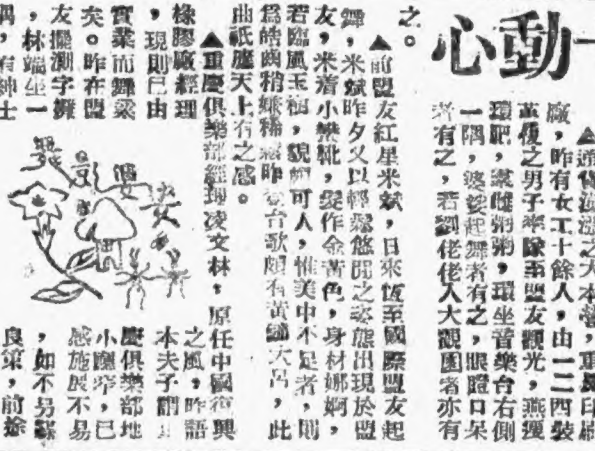 一動心
▲通貨膨脹之大本營,重慶印刷
廠,昨有女工十餘人,由一二西裝
革履之男子率隊至盟友觀光,燕瘦
環肥,羣雌粥粥,環坐音樂台右側
一隅,婆娑起舞者有之,眼瞪口呆
者有之,若劉佬佬入大觀園者亦有
之。
▲前盟友紅星米斌,日來恆至國際盟友起
舞,米斌昨夕又以輕鬆悠閒之姿態出現於盟
友,米着小蠻靴,髮作金黃色,身材娜婀,
若臨風玉樹,貌頗可人,惟美中不足者,則
爲皓齒稍嫌稀疏昨登台歌頗有黃鐘大呂,此
曲祇應天上有之感。
▲重慶俱樂部經理凌文林,原任中國復興
橡膠廠經理
,現則已由
實業而舞業
矣。昨在盟
友擺測字攤
,林端坐一
隅,有紳士
之風,昨語
本夫子謂重
慶俱樂部地
小廳窄,已
感施展不易
,如不易謀
良策,前途
舞影婆娑